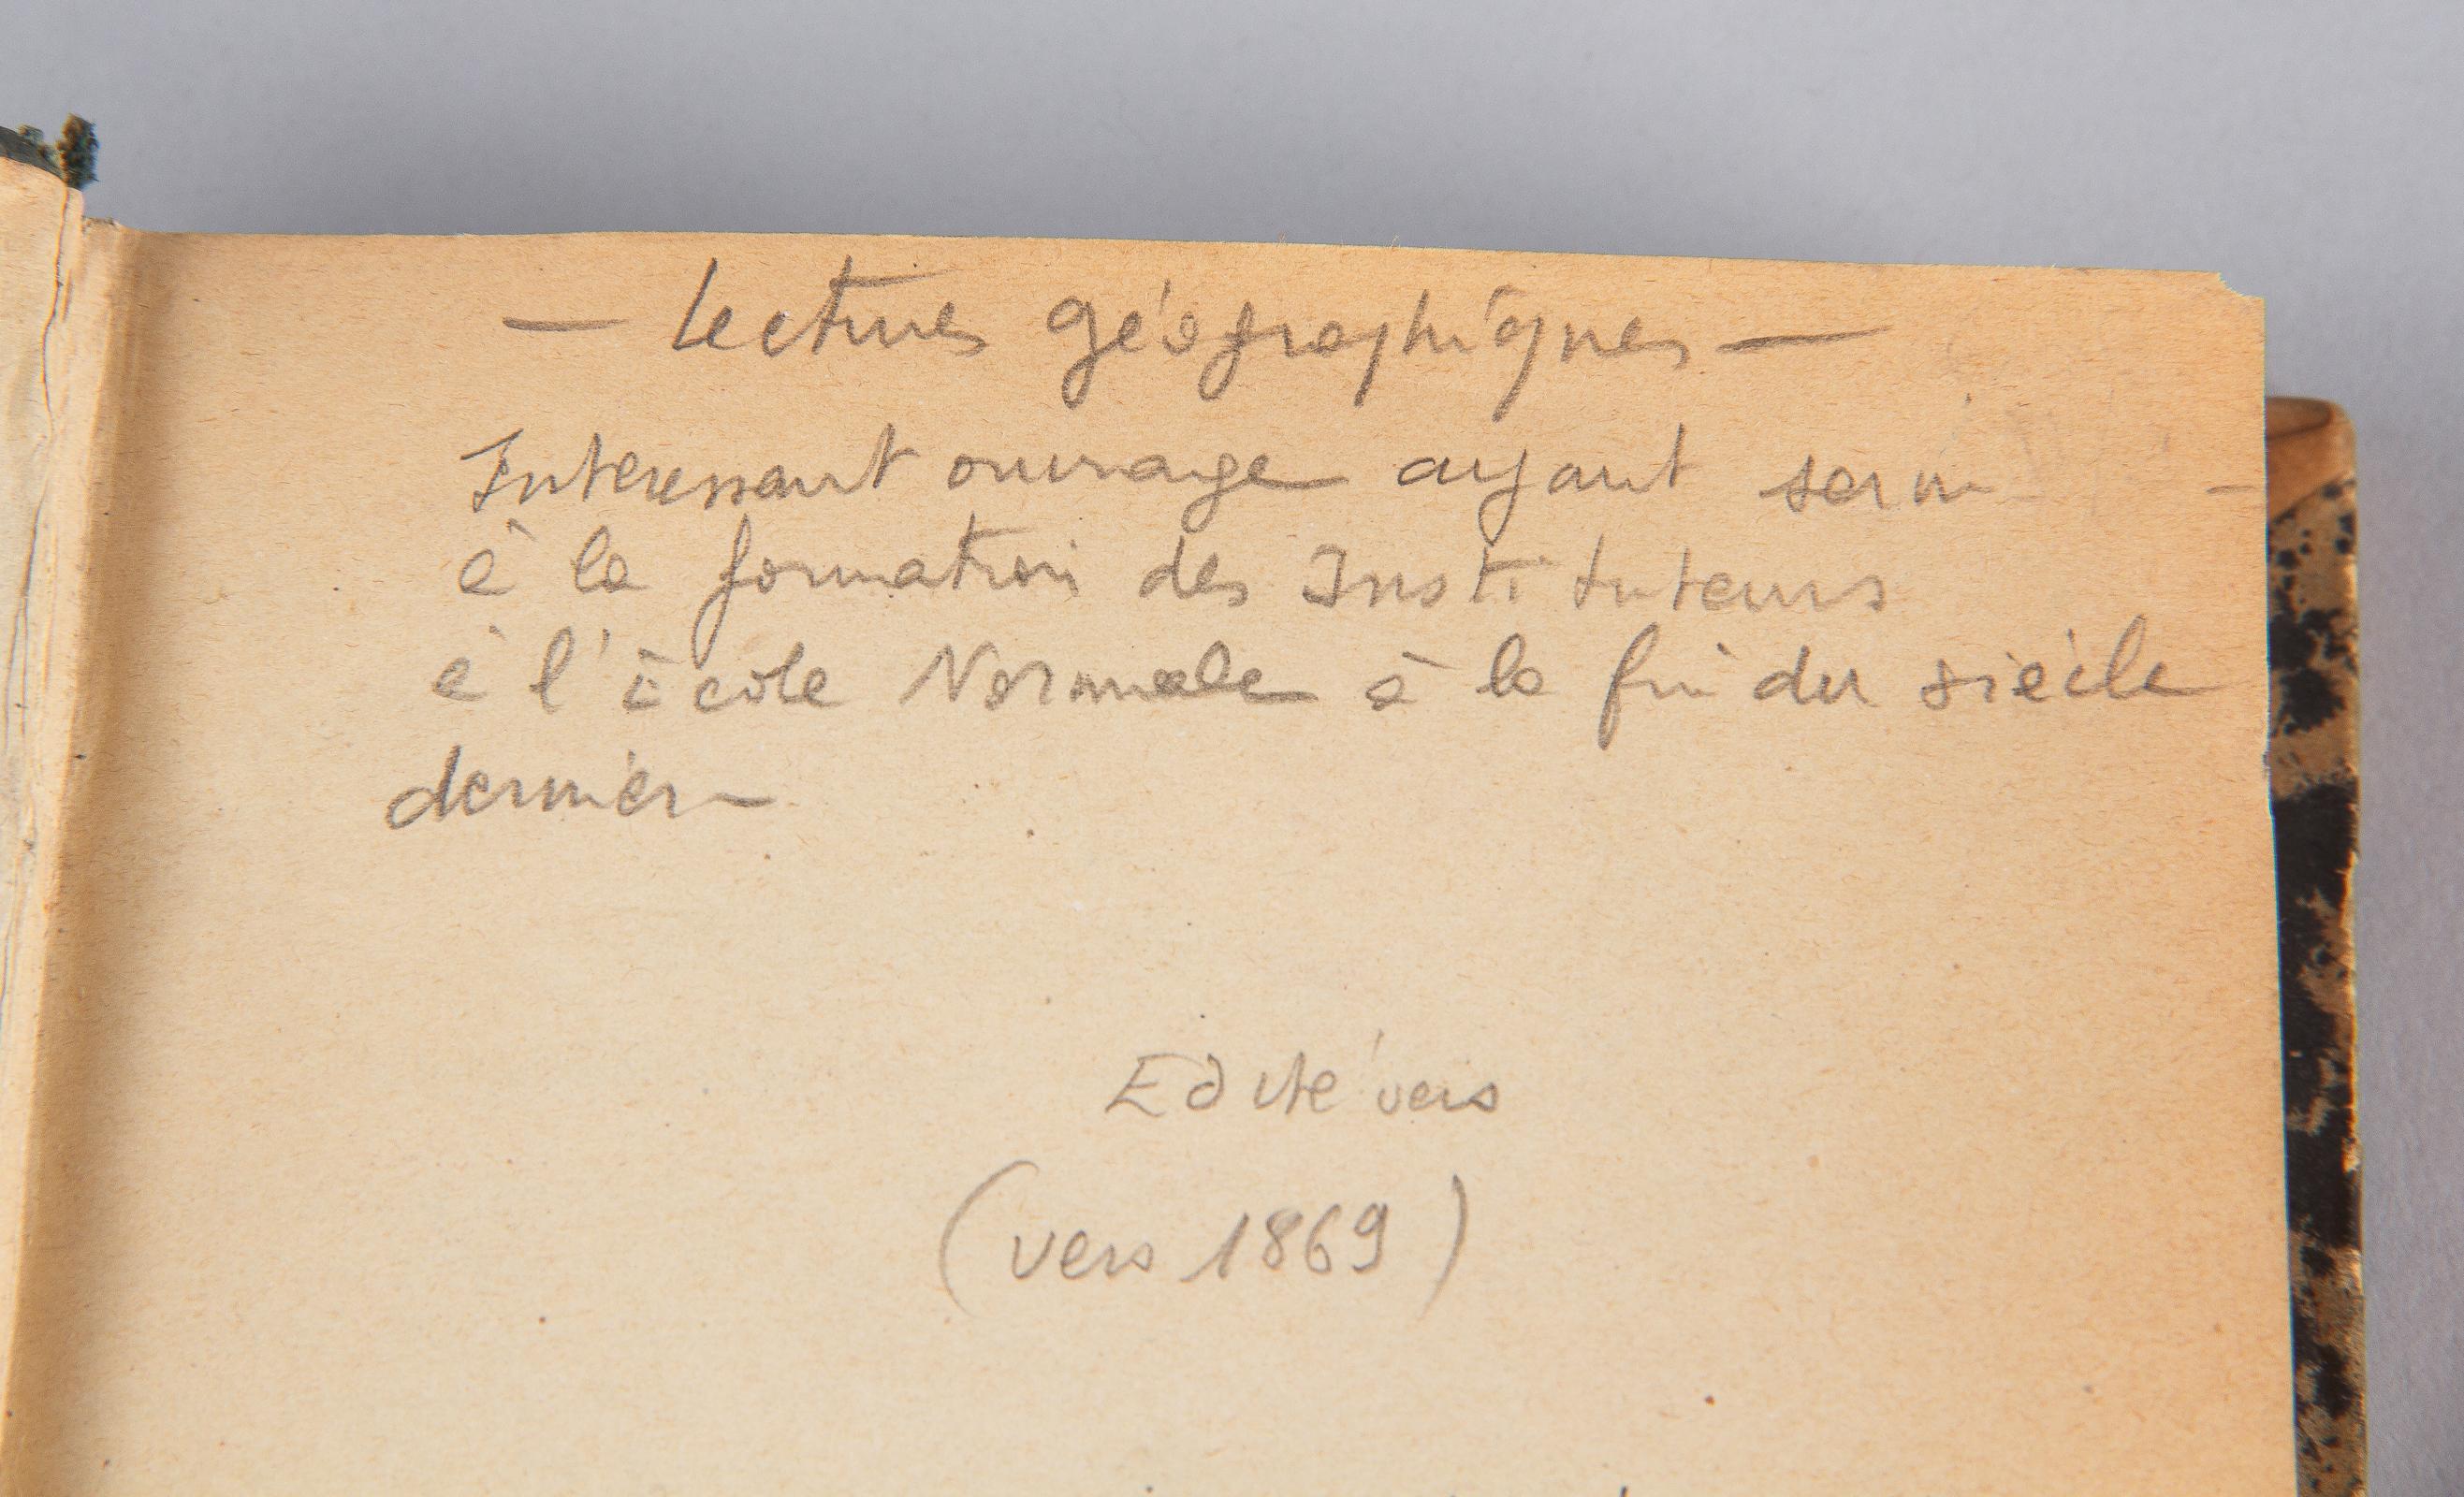 — Lectures géographiques —
Interessant ouvrage ayant servi
à la formation des Instituteurs
à l'école Normale à la fin du siècle
dernier
Edité vers
(vers 1869)